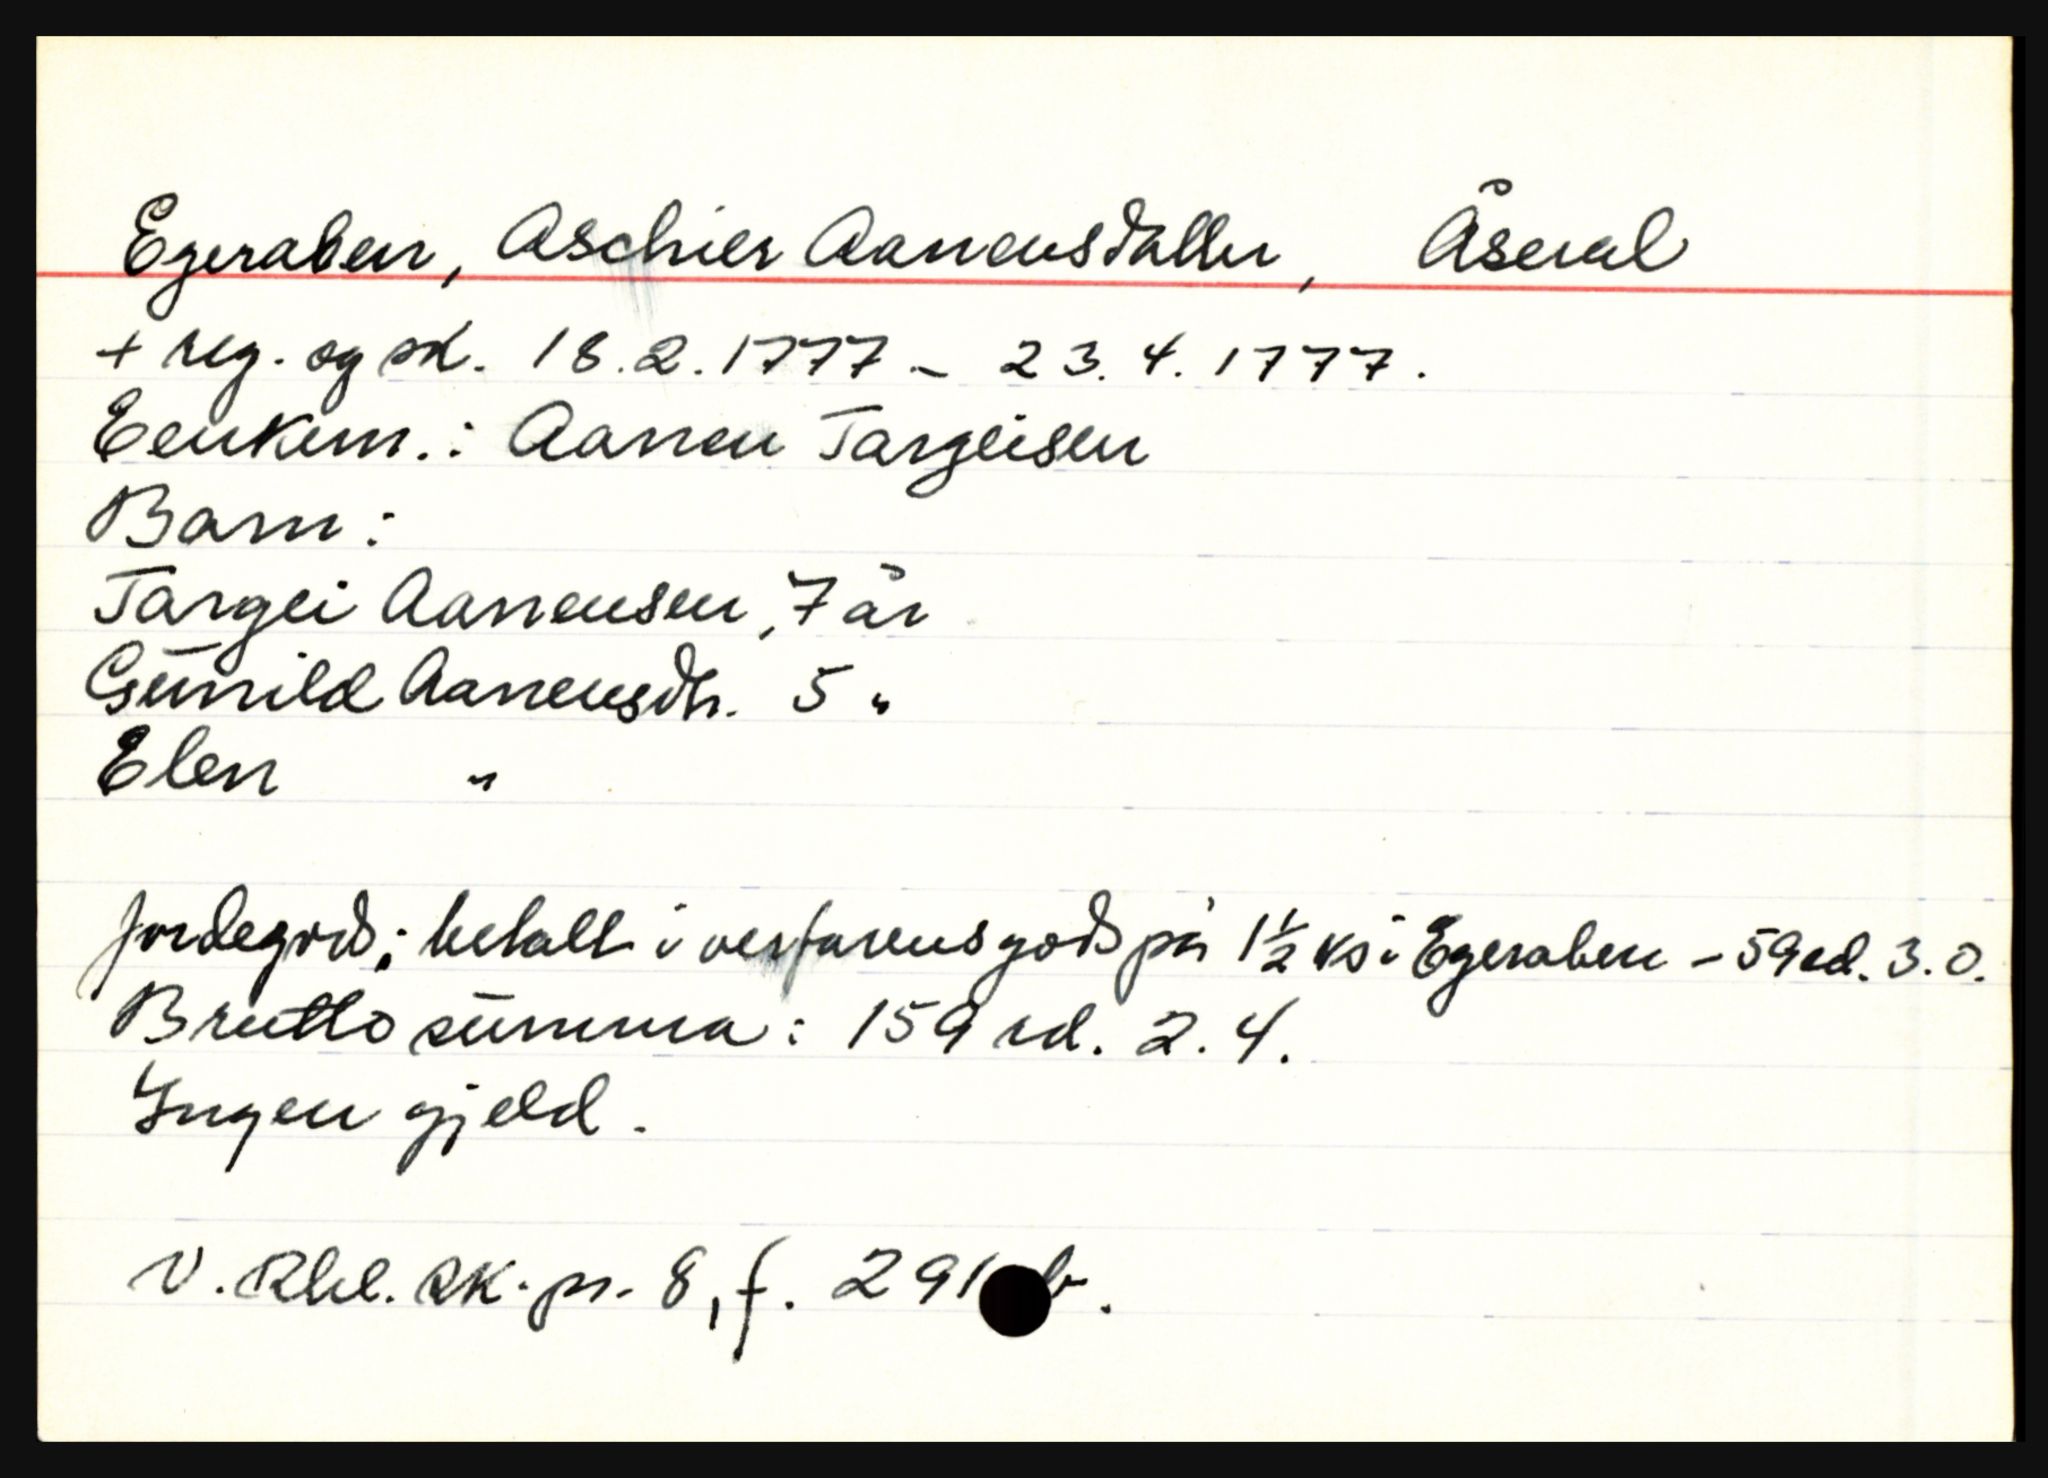 Egeraben, Aschier Aanensdatter, Åseral
+ reg. og sk. 18.2.1777 - 23.4.1777.
Eenkem.: Aanen Targeisen
Barn:
Targei Aanensen, 7 år
Gunild Aanensdtr. 5 "
Elen "
Jordegods; betalt i verfarensgods på 1½ ks i Egeraben - 59 rd. 3.0.
Brutto summa: 159 rd. 2.4.
Ingen gjeld.
V. Rbl. sk. pr. 8, f. 291 b.